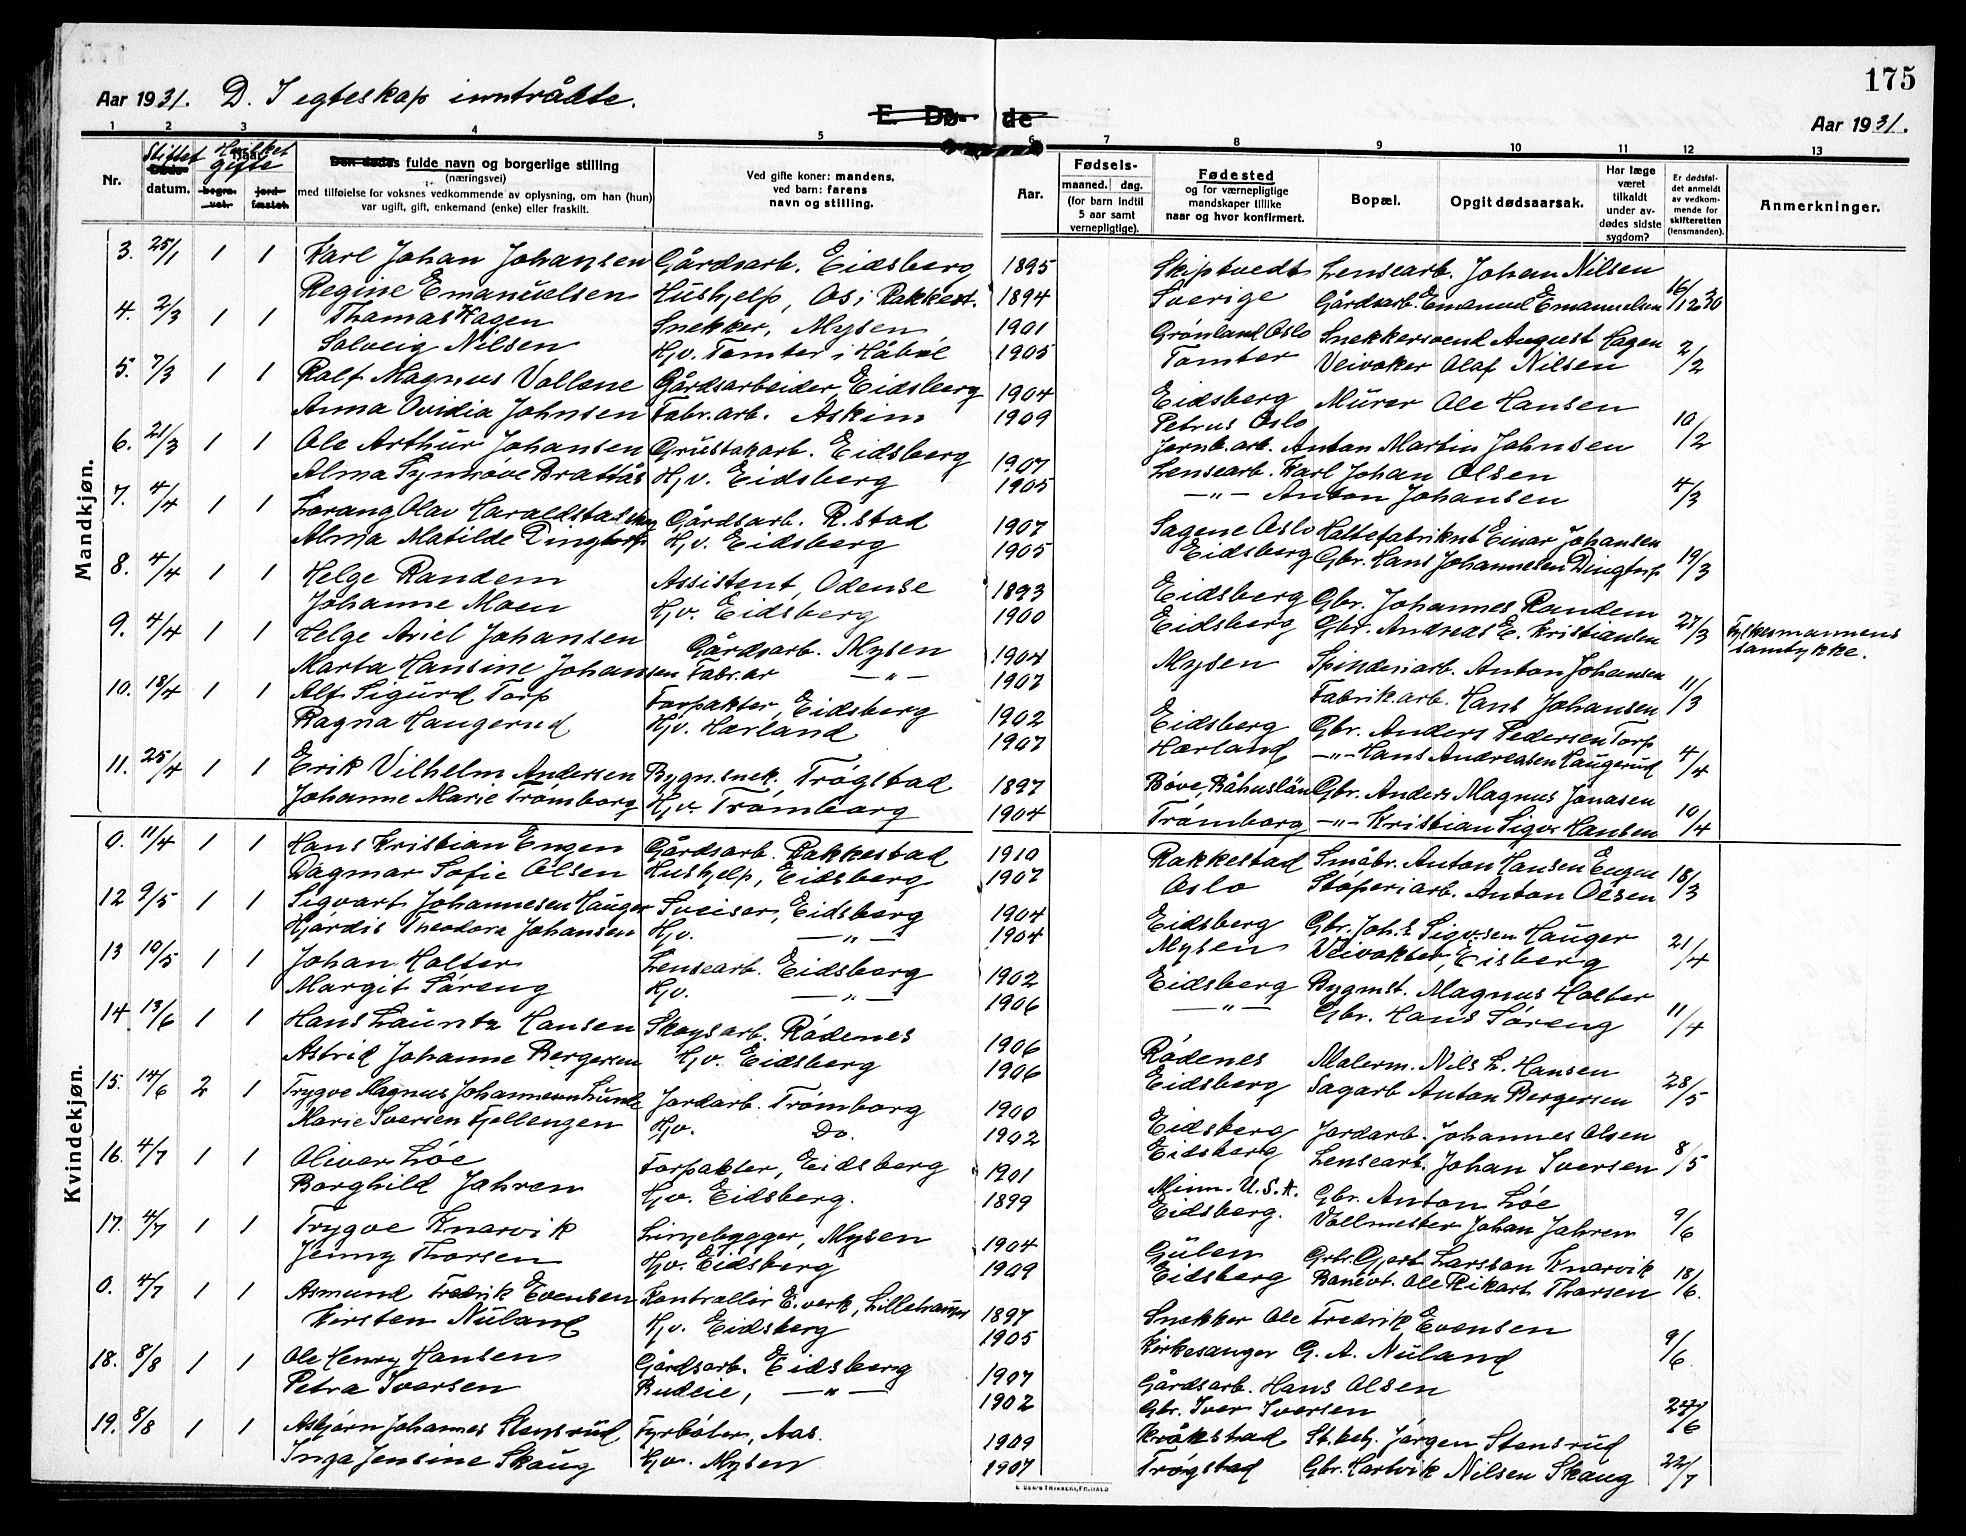 175
Aar 1931. D. I egteskap inntrådte.
E. Døde
Aar 1931.
1 2 3 4 5 6 7 8 9 10 11 12 13
Nr.
Stiftet
Døds-
datum.
Hvilket
Gifte
Naar
begra-
vet.
jord-
fæstet.
Den dødes fulde navn og borgerlige stilling
(næringsvei)
med tilføielse for voksnes vedkommende av oplysning, om han (hun)
var ugift, gift, enkemand (enke) eller fraskilt.
Ved gifte koner: mandens,
ved barn: farens
navn og stilling.
Aar.
Fødsels-
maaned. dag.
(for barn indtil
5 aar samt
vernepligtige).
Fødested
og for værnepligtige
mandskaper tillike
naar og hvor konfirmert.
Bopæl.
Opgit dødsaarsak.
Har læge
været
tilkaldt
under av-
dødes sidste
sygdom?
Er dødsfal-
det anmeldt
av vedkom-
mende for
skifteretten
(lensmanden).
Anmerkninger.
Mandkjøn.
3. 25/1 1 1 Karl Johan Johansen Gårdsarb. Eidsberg 1895 Skiptvedt Lensearb. Johan Nilsen
Regine Emanuelsen Hushjelp, Os i Rakkest. 1894 Sverige Gårdsarb. Emanuel Emanuelsen 16/12 30
4. 2/3 1 1 Thomas Hagen Snekker, Mysen 1901 Grønland Oslo Snekkersvend August Hagen
Solveig Nilsen Hjv. Tomter i Håbøl 1905 Tomter Veivokter Olaf Nilsen 2/2
5. 7/3 1 1 Rolf Magnus Vollene Gårdsarbeider, Eidsberg 1904 Eidsberg Murer Ole Hansen
Anna Ovidia Johnsen Fabr.arb. Askim 1909 Petrus Oslo Jernb.arb. Anton Martin Johnsen 10/2
6. 21/3 1 1 Ole Arthur Johansen Grustakarb. Eidsberg 1907 Lensearb. Karl Johan Olsen
Alma Synnøve Brattås Hjv. Eidsberg 1905 —"— Anton Johansen 4/3
7. 4/4 1 1 Lorang Olav Haraldstad Gårdsarb. R.stad 1907 Sagene Oslo Einar Johansen
Alma Matilde Dingtorp Hjv. Eidsberg 1905 Eidsberg Gbr. Hans Johannesen Dingtorp 19/3
8. 4/4 1 1 Helge Randem Assistent, Odense 1893 Eidsberg Gbr. Johannes Randem
Johanne Moen Hjv. Eidsberg 1900 Eidsberg Gbr. Andreas E. Kristiansen 27/3 Fylkesmannens samtykke.
9. 4/4 1 1 Helge Ariel Johansen Gårdsarb. Mysen 1904 Mysen Spinderiarb. Anton Johansen
Marta Hansine Johansen Fabr.ar —"— 1907 Fabrik.arb. Hans Johansen 11/3
10. 18/4 1 1 Alf Sigurd Torp Forpakter, Eidsberg 1902 Eidsberg Gbr. Anders Pedersen Torp
Ragna Haugerud Hjv. Hærland 1907 Hærland —"— Hans Andreasen Haugerud 4/4
11. 25/4 1 1 Erik Vilhelm Andersen Bygn.snek. Trøgstad 1897 Bove, Båhuslän Gbr. Anders Magnus Jonasen
Johanne Marie Trømborg Hjv. Trømborg 1904 Trømborg —"— Kristian Sigv. Hansen 10/4
Kvindekjøn.
0. 11/4 1 1 Hans Kristian Engen Gårdsarb. Rakkestad 1910 Rakkestad Småbr. Anton Hansen Engen
Dagmar Sofie Olsen Hushjelp, Eidsberg 1907 Oslo Støperiarb. Anton Olsen 18/3
12 9/5 1 1 Sigvart Johannesen Hauger Sveiser, Eidsberg 1904 Eidsberg Gbr. Joh.s Sigv.sen Hauger
Hjørdis Theodora Johansen Hjv. —"— 1904 Mysen Veivokter, Eisberg 21/4
13 10/5 1 1 Johan Holter Lensearb. Eidsberg 1902 Eidsberg Bygmst. Magnus Holter
Margit Søreng Hjv. —"— 1906 —"— Gbr. Hans Søreng 11/4
14. 13/6 1 1 Hans Lauritz Hansen Skogsarb. Rødenes 1906 Rødenes Malerm. Nils L. Hansen
Astrid Johanne Bergersen Hjv. Eidsberg 1906 Eidsberg Sagarb Anton Bergersen 28/5
15. 14/6 2 1 Trygve Magnus Johannesen Lunde Jordarb. Trømborg 1900 Eidsberg Jordarb. Johannes Olsen
Marie Iversen Fjellengen Hjv. Do. 1902 Eidsberg Lensearb. Johan Iversen 8/5
16. 4/7 1 1 Olivar Løe Forpakter, Eidsberg 1901 Minn. U.S.A. Gbr. Anton Løe
Borghild Jahren Hjv. Eidsberg. 1899 Eidsberg. Vollmester Johan Jahren 9/6
17. 4/7 1 1 Trygve Knarvik Linjebygger, Mysen 1904 Gulen Grbr. Gjert Larsson Knarvik
Jenny Thorsen Hjv. Eidsberg 1909 Eidsberg Banevt. Ole Rikart Thorsen 18/6.
0. 4/7 1 1 Asmund Fredrik Evensen Kontrollør E.verk, Lillehammer 1897 Snekker Ole Fredrik Evensen
Kirsten Nuland Hjv. Eidsberg 1905 Kirkesanger G. A. Nuland 9/6.
18. 8/8 1 1 Ole Henry Hansen Gårdsarb. Eidsberg 1907 Gårdsarb. Hans Olsen
Petra Iversen Budeie, —"— 1902 Gbr. Iver Iversen 27/6
19. 8/8 1 1 Asbjørn Johannes Stensrud Fyrbøter, Aas. 1909 Kråkstad St.betj. Jørgen Stensrud
Inga Jensine Skaug Hjv. Mysen 1907 Trøgstad Gbr. Hartvik Nilsen Skaug 22/7